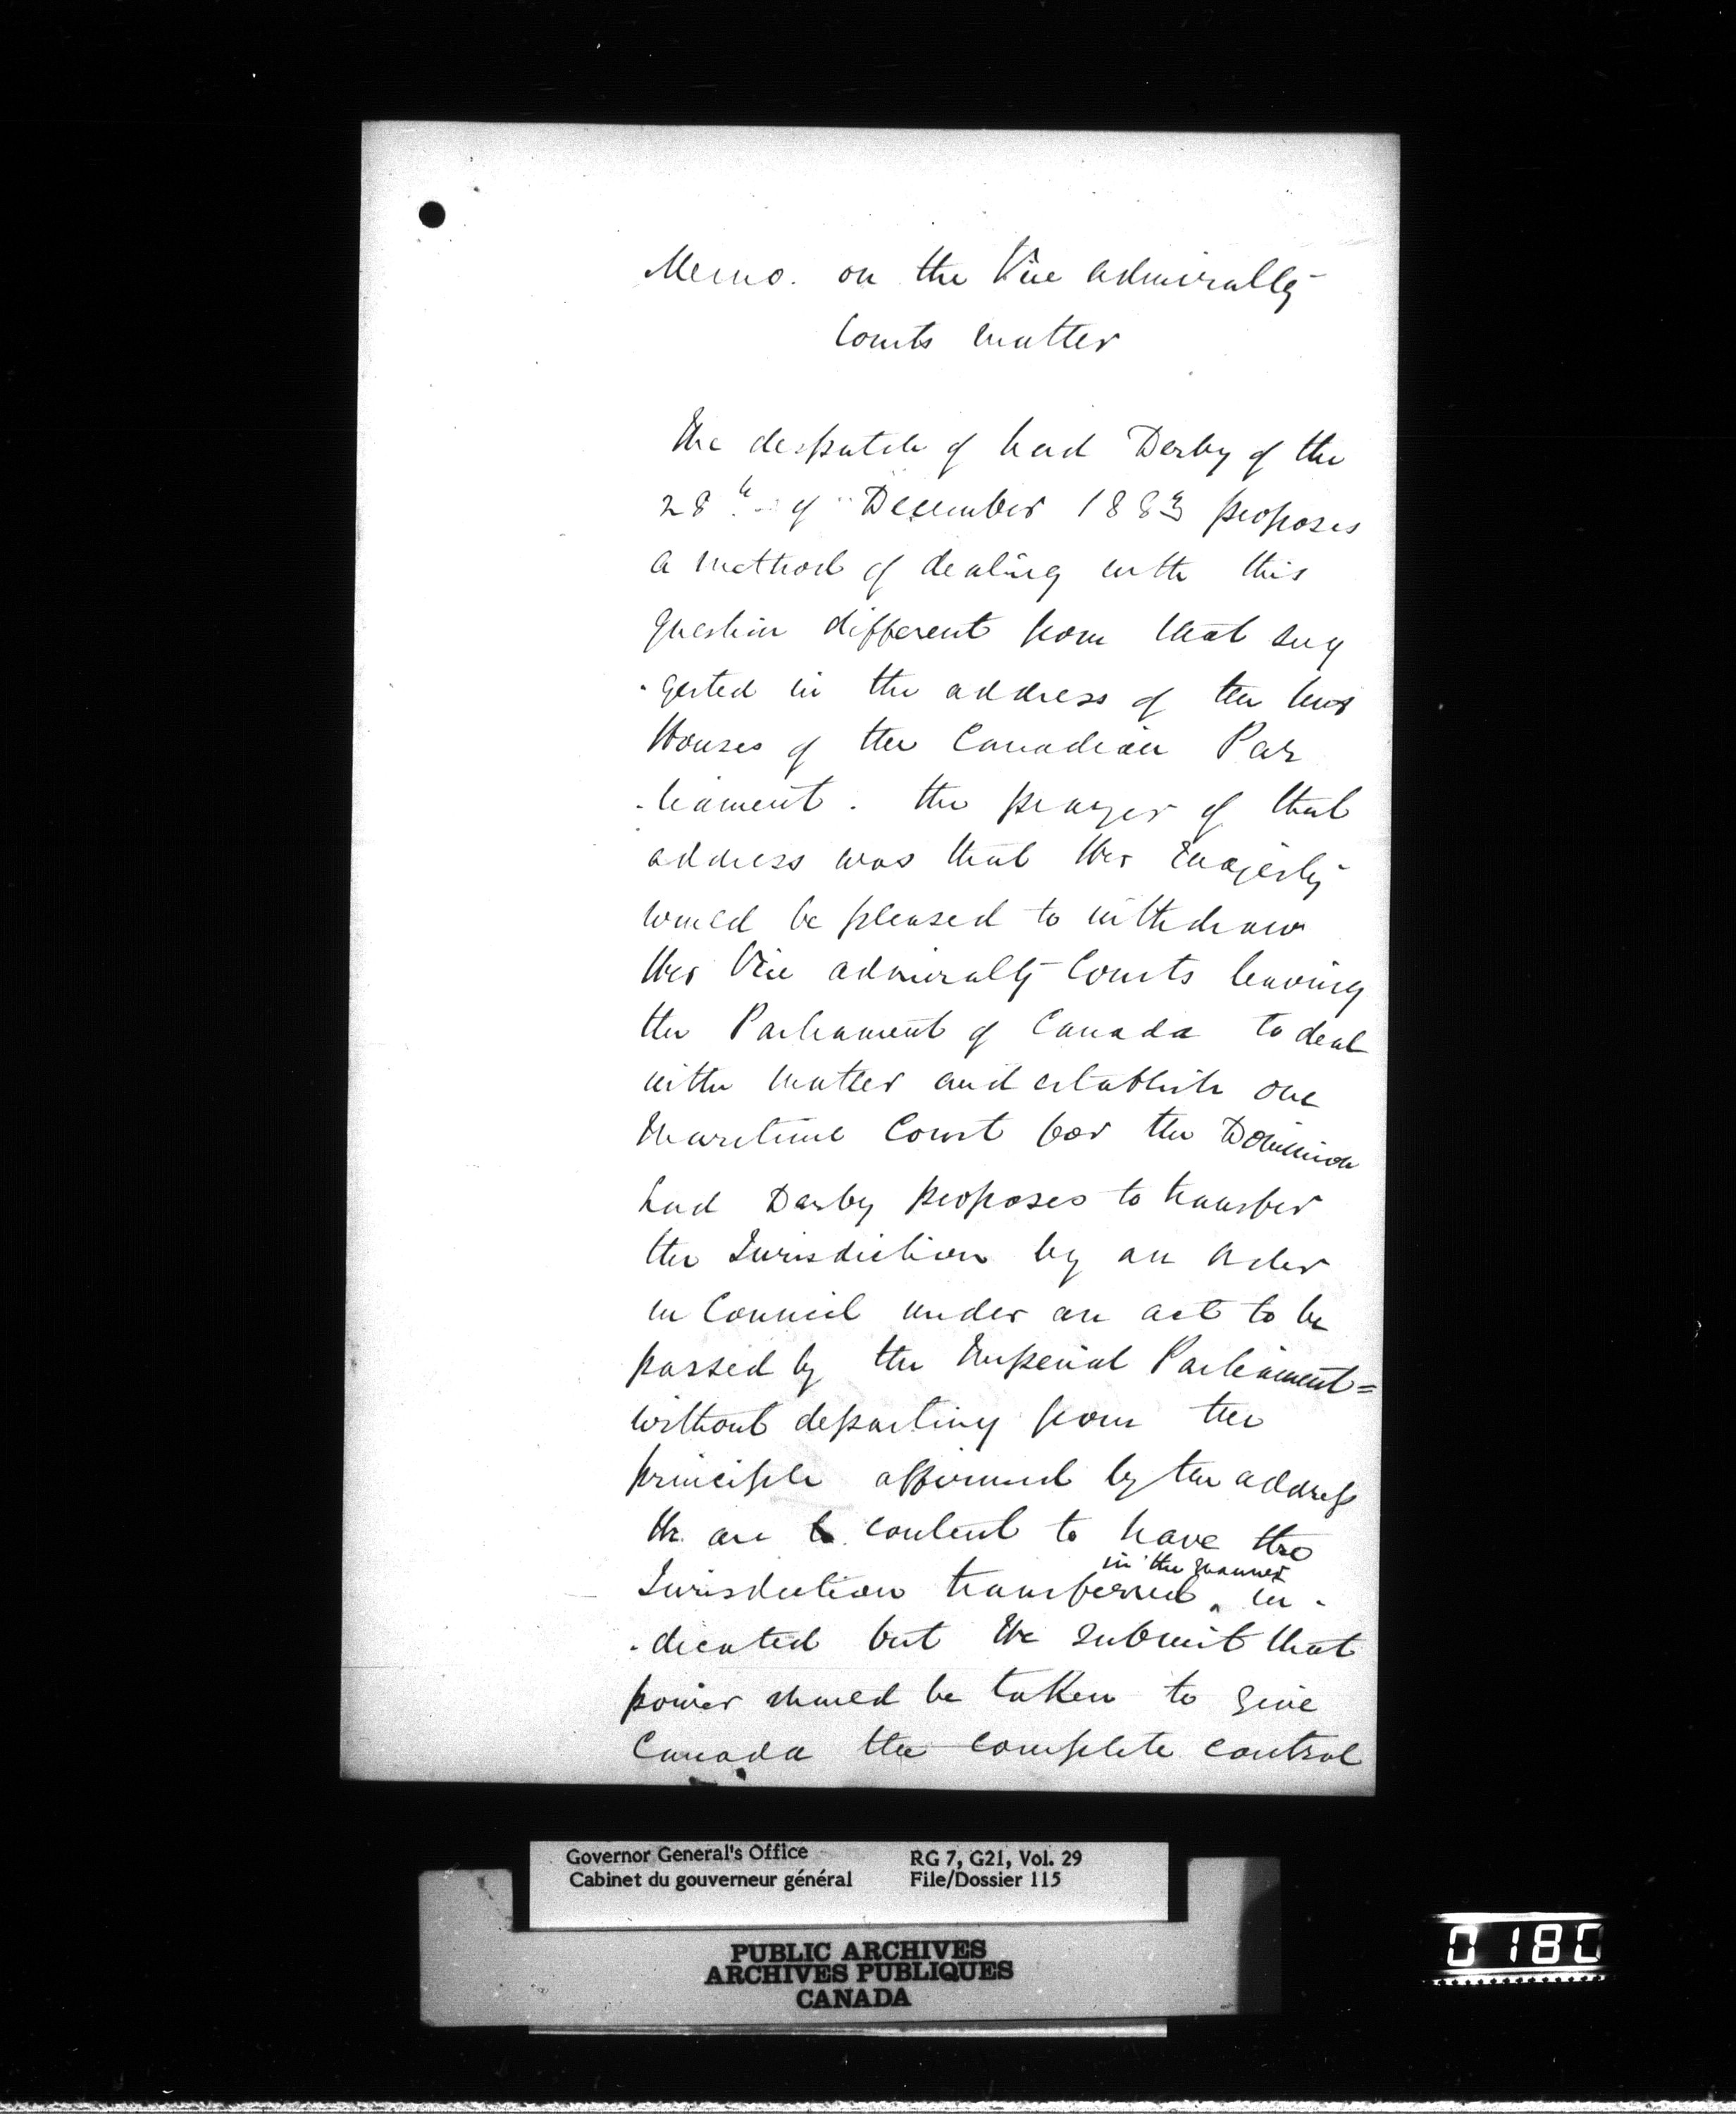 Memo. on the Vice Admiralty
Courts matter
The despatch of Lord Derby of the
28th of December 1883 proposes
a method of dealing with this
question different from that sug
-gested in the address of the two
Houses of the Canadian Par
-liament. The prayer of that
address was that Her Majesty
would be pleased to withdraw
Her Vice Admiralty Courts leaving
the Parliament of Canada to deal
with matter and establish one
Maritime Court for the Dominion
Lord Derby proposes to transfer
the Jurisdiction by an Order
in Council under an act to be
passed by the Imperial Parliament=
without departing from the
principle affirmed by the address
We are content to have the
in the manner
Jurisdiction transferred in-
-dicated but We submit that
power should be taken to give
Canada the complete control
Governor General's Office
Cabinet du gouverneur général
RG 7, G21, Vol. 29
File/Dossier 115
PUBLIC ARCHIVES
ARCHIVES PUBLIQUES
CANADA
0180